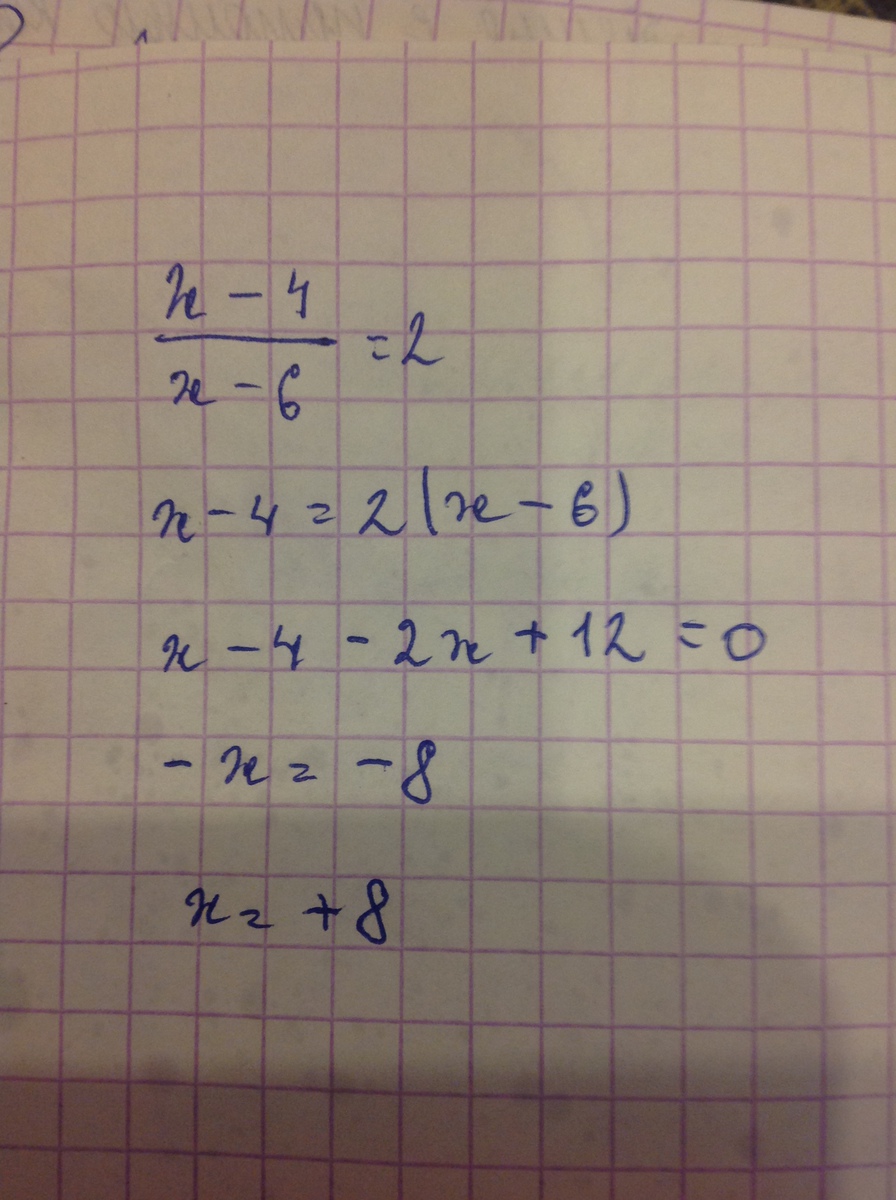 x - 4
x - 6 = 2
x - 4 = 2(x - 6)
x - 4 - 2x + 12 = 0
- x = - 8
x = + 8